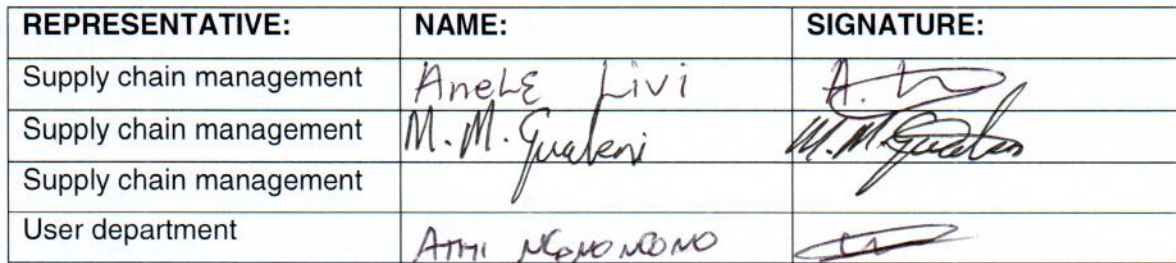 REPRESENTATIVE: NAME: SIGNATURE:
Supply chain management AneLE Livi A. L
Supply chain management M. M. M. M.
Supply chain management
User department ATHI